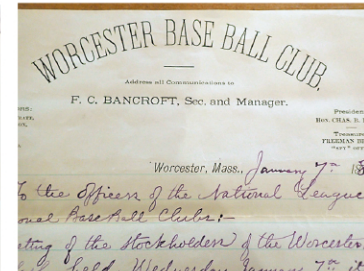 WORCESTER BASE BALL CLUB.
Address all Communications to
F. C. BANCROFT, Sec. and Manager.
Presiden
HON. CHAS. B.
Treasure
FREEMAN B
Worcester, Mass., January 7th 18
To the Officers of the National League
onal Base Ball Clubs:-
eting of the Stockholders of the Worcester
held Wednesday January 7th